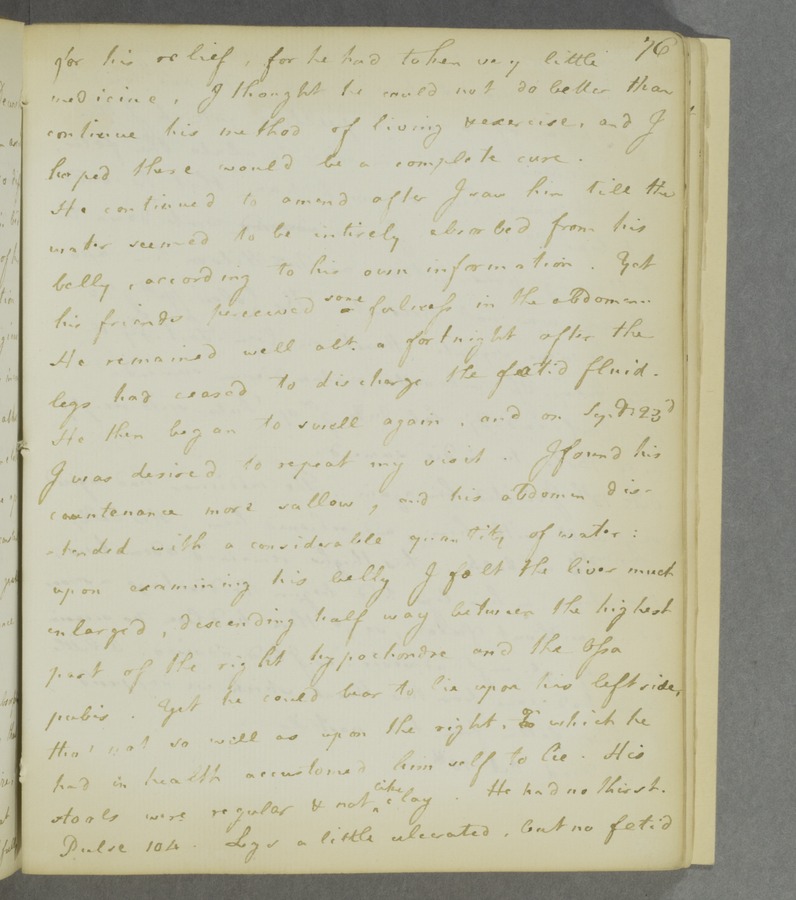 76
for his relief, for he had taken very little
medicine, I thought he could not do better than
continue his method of living & exercise, and I
hoped these would be a complete cure.
He continued to amend after I saw him till the
water seemed to be intirely absorbed from his
belly, according to his own information. Yet
his friends perceived some fulness in the abdomen.
He remained well abt. a fortnight after the
legs had ceased to discharge the foetid fluid.
He then began to swell again, and on Septr 23d
I was desired to repeat my visit. I found his
countenance more sallow, and his abdomen dis-
-tended with a considerable quantity of water:
upon examining his belly I felt the liver much
enlarged, descending half way between the highest
part of the right hypochondre and the Ossa
pubis. Yet he could bear to lie upon his left side,
tho' not so well as upon the right, on which he
had in health accustomed himself to lie. His
stools were regular & not like clay. He had no thirst.
Pulse 104. Legs a little ulcerated, but no fetid